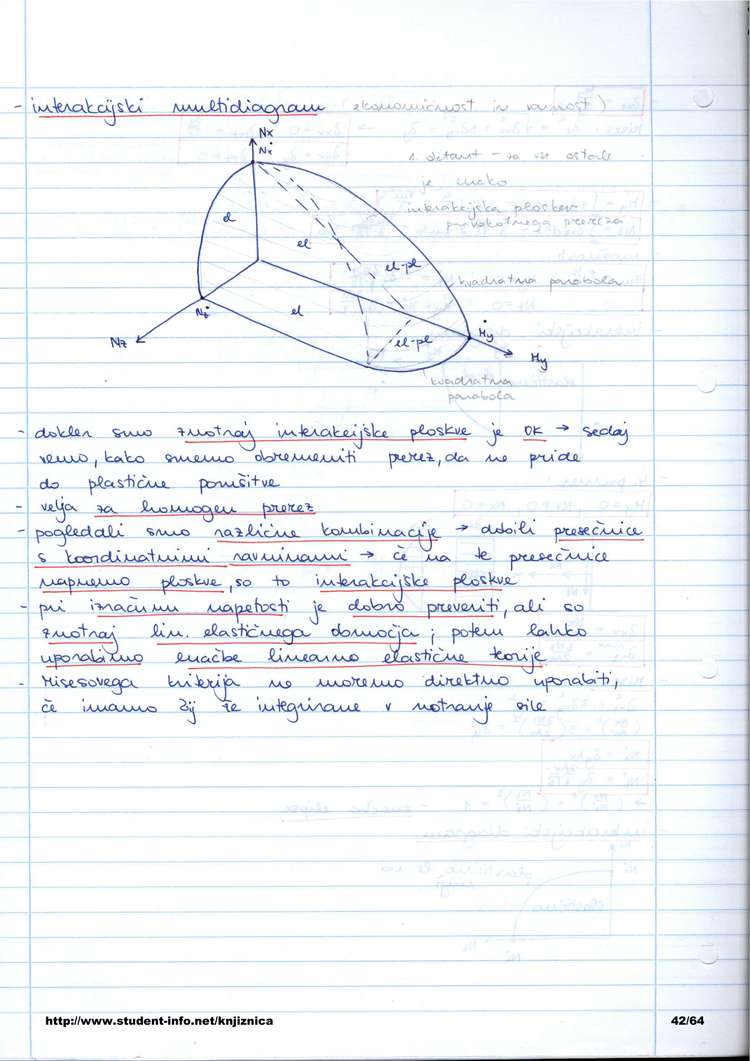 - interakcijski multidiagram (ekonomičnost in varnost)
Nx
Nx
1. oktant - za vse ostale
je enako
interakcijska ploskev
pravokotnega prereza
el
el
el-pl
kvadratna parabola
el
Nz
Nz
el-pl
My
My
kvadratna
parabola
- dokler smo znotraj interakcijske ploskve je OK → sedaj
vemo, kako smemo obremeniti prerez, da ne pride
do plastične porušitve
- velja za homogen prerez
- pogledali smo različne kombinacije → dobili presečnice
s koordinatnimi ravninami → če na te presečnice
napnemo ploskve, so to interakcijske ploskve
- pri izračunu napetosti je dobro preveriti, ali so
znotraj lin. elastičnega območja; potem lahko
uporabimo enačbe linearno elastične teorije
- Misesovega kriterija ne moremo direktno uporabiti,
če imamo σij že integrirane v notranje sile
http://www.student-info.net/knjiznica
42/64